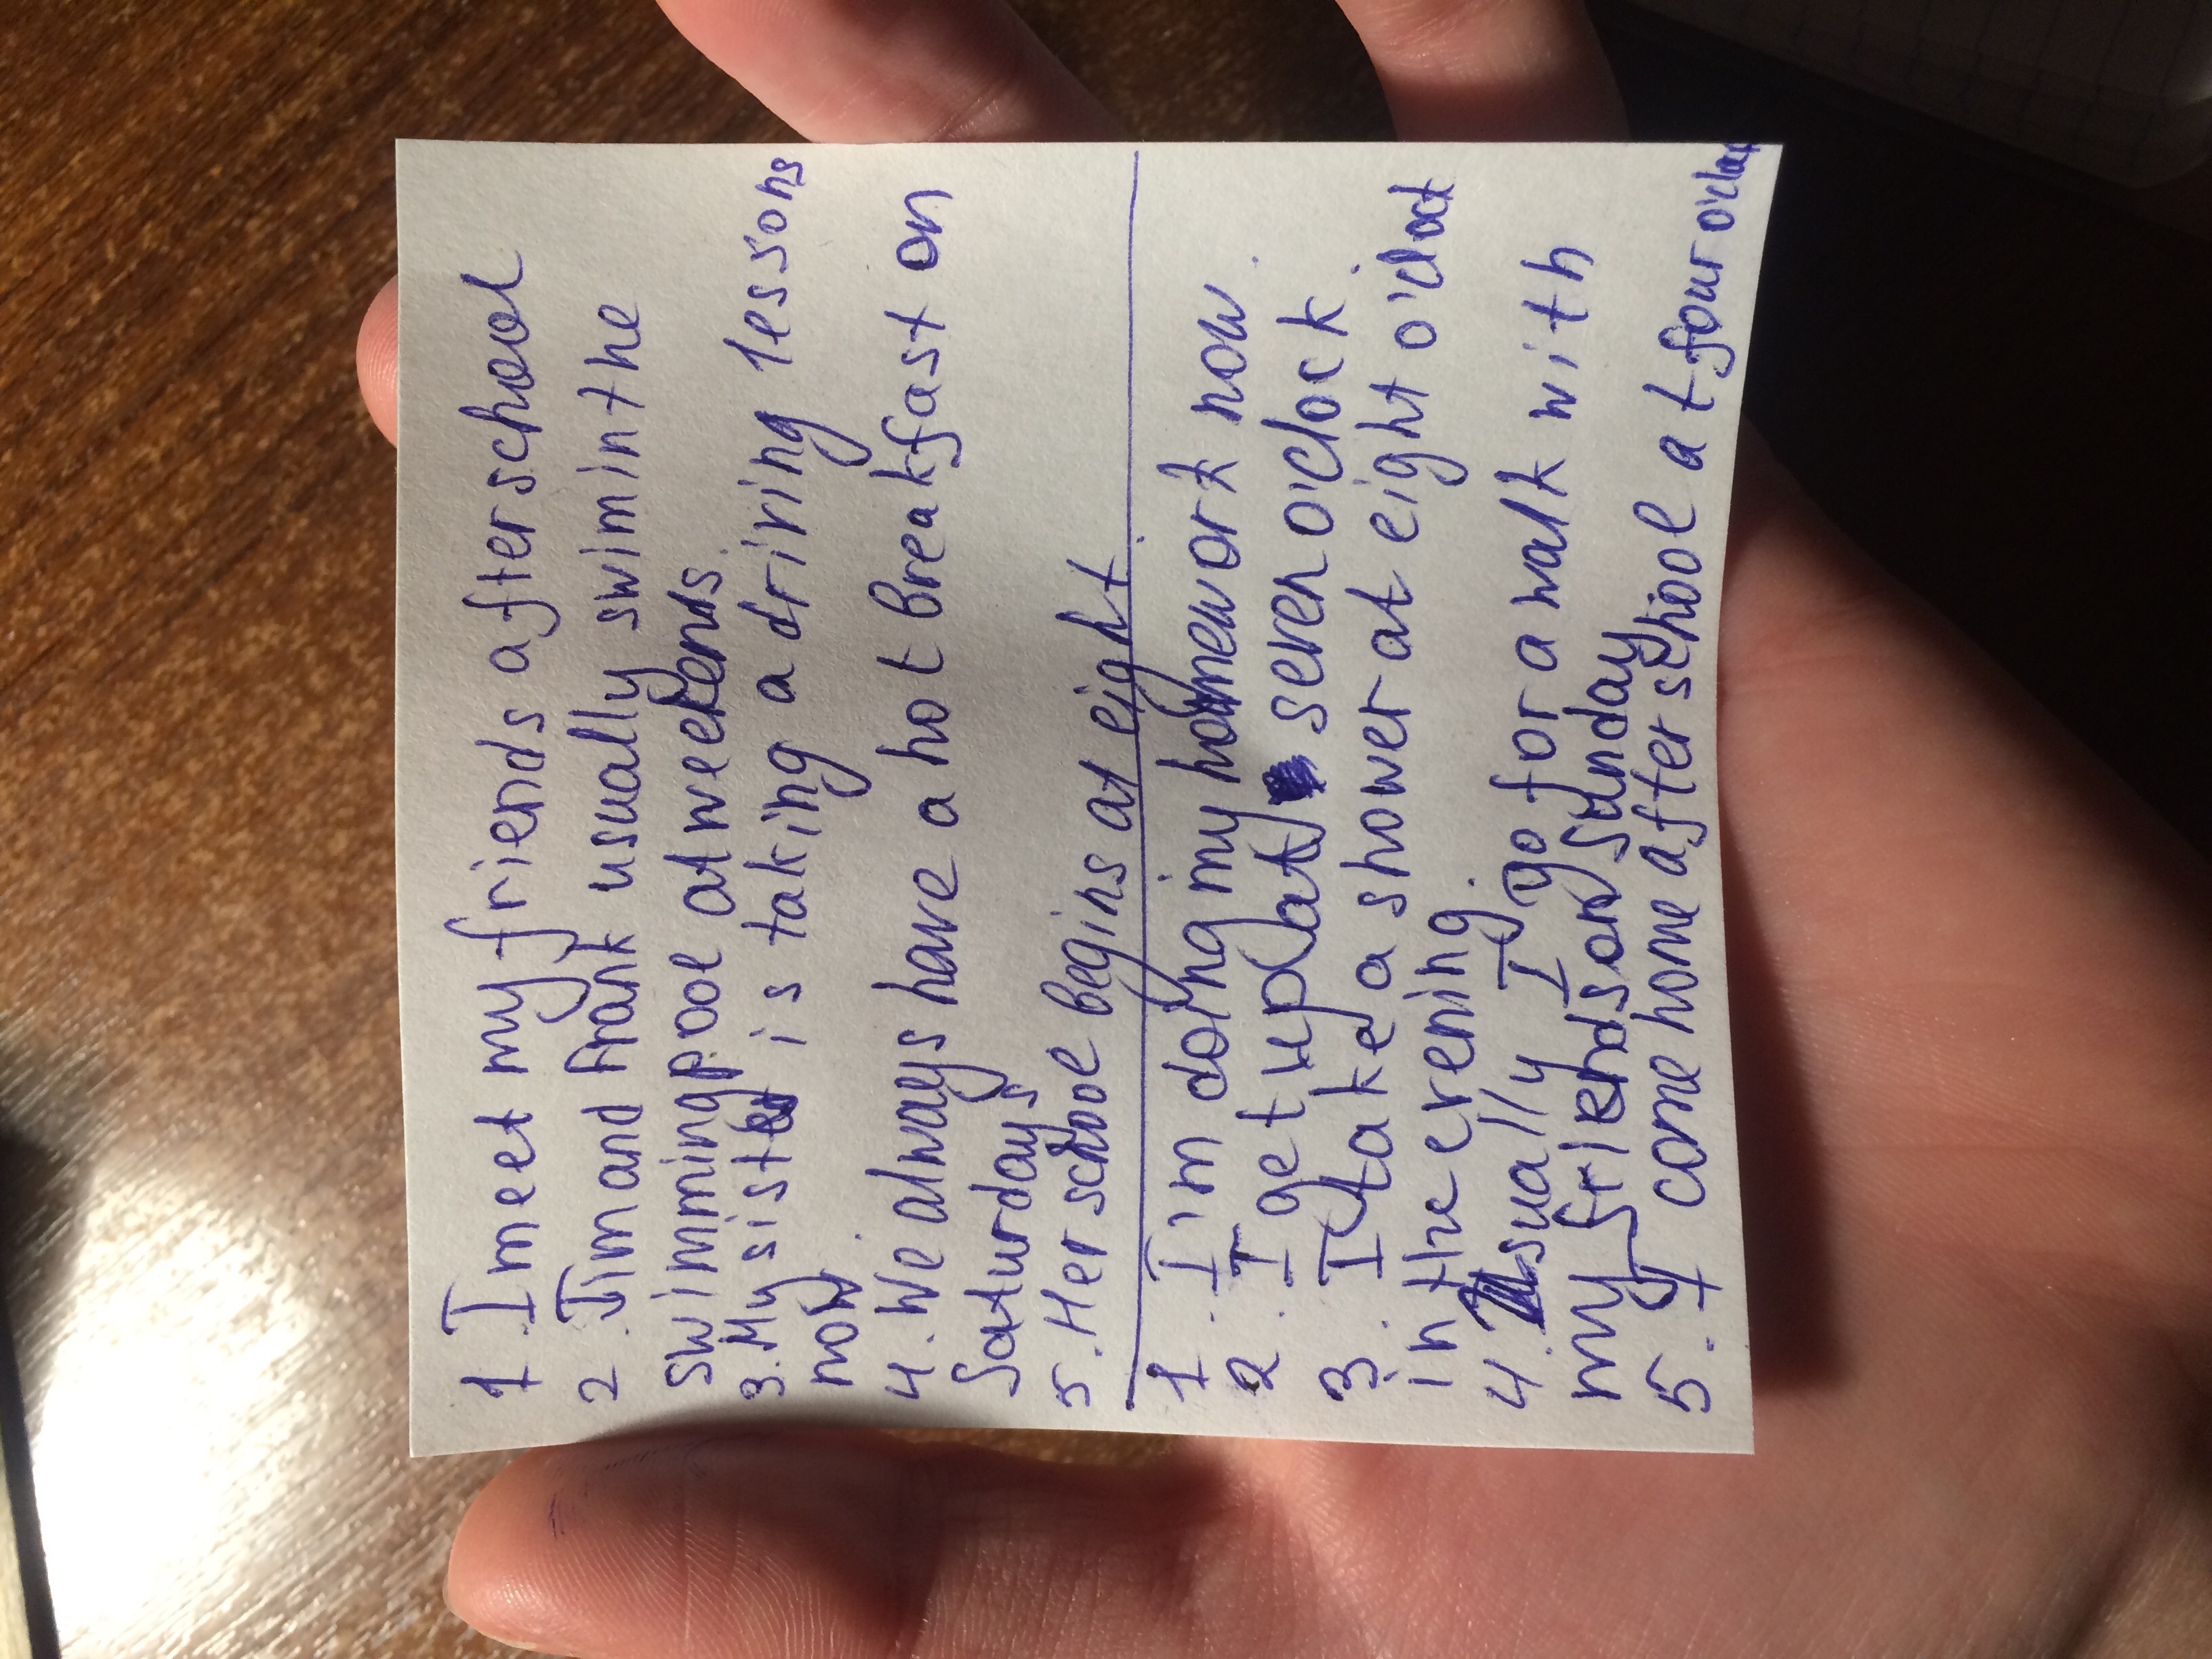 1. I meet my friends after school
2. Jim and Frank usually swim in the
swimming pool at weekends
3. My sister is taking a driving lessons
now.
4. We always have a hot breakfast on
Saturdays
5. Her school begins at eight.
1. I'm doing my homework now.
2. I get up at seven o'clock
3. I take a shower at eight o'clock
in the evening.
4. Usually I go for a walk with
my friends on Sunday
5. I come home after school at four o'clock